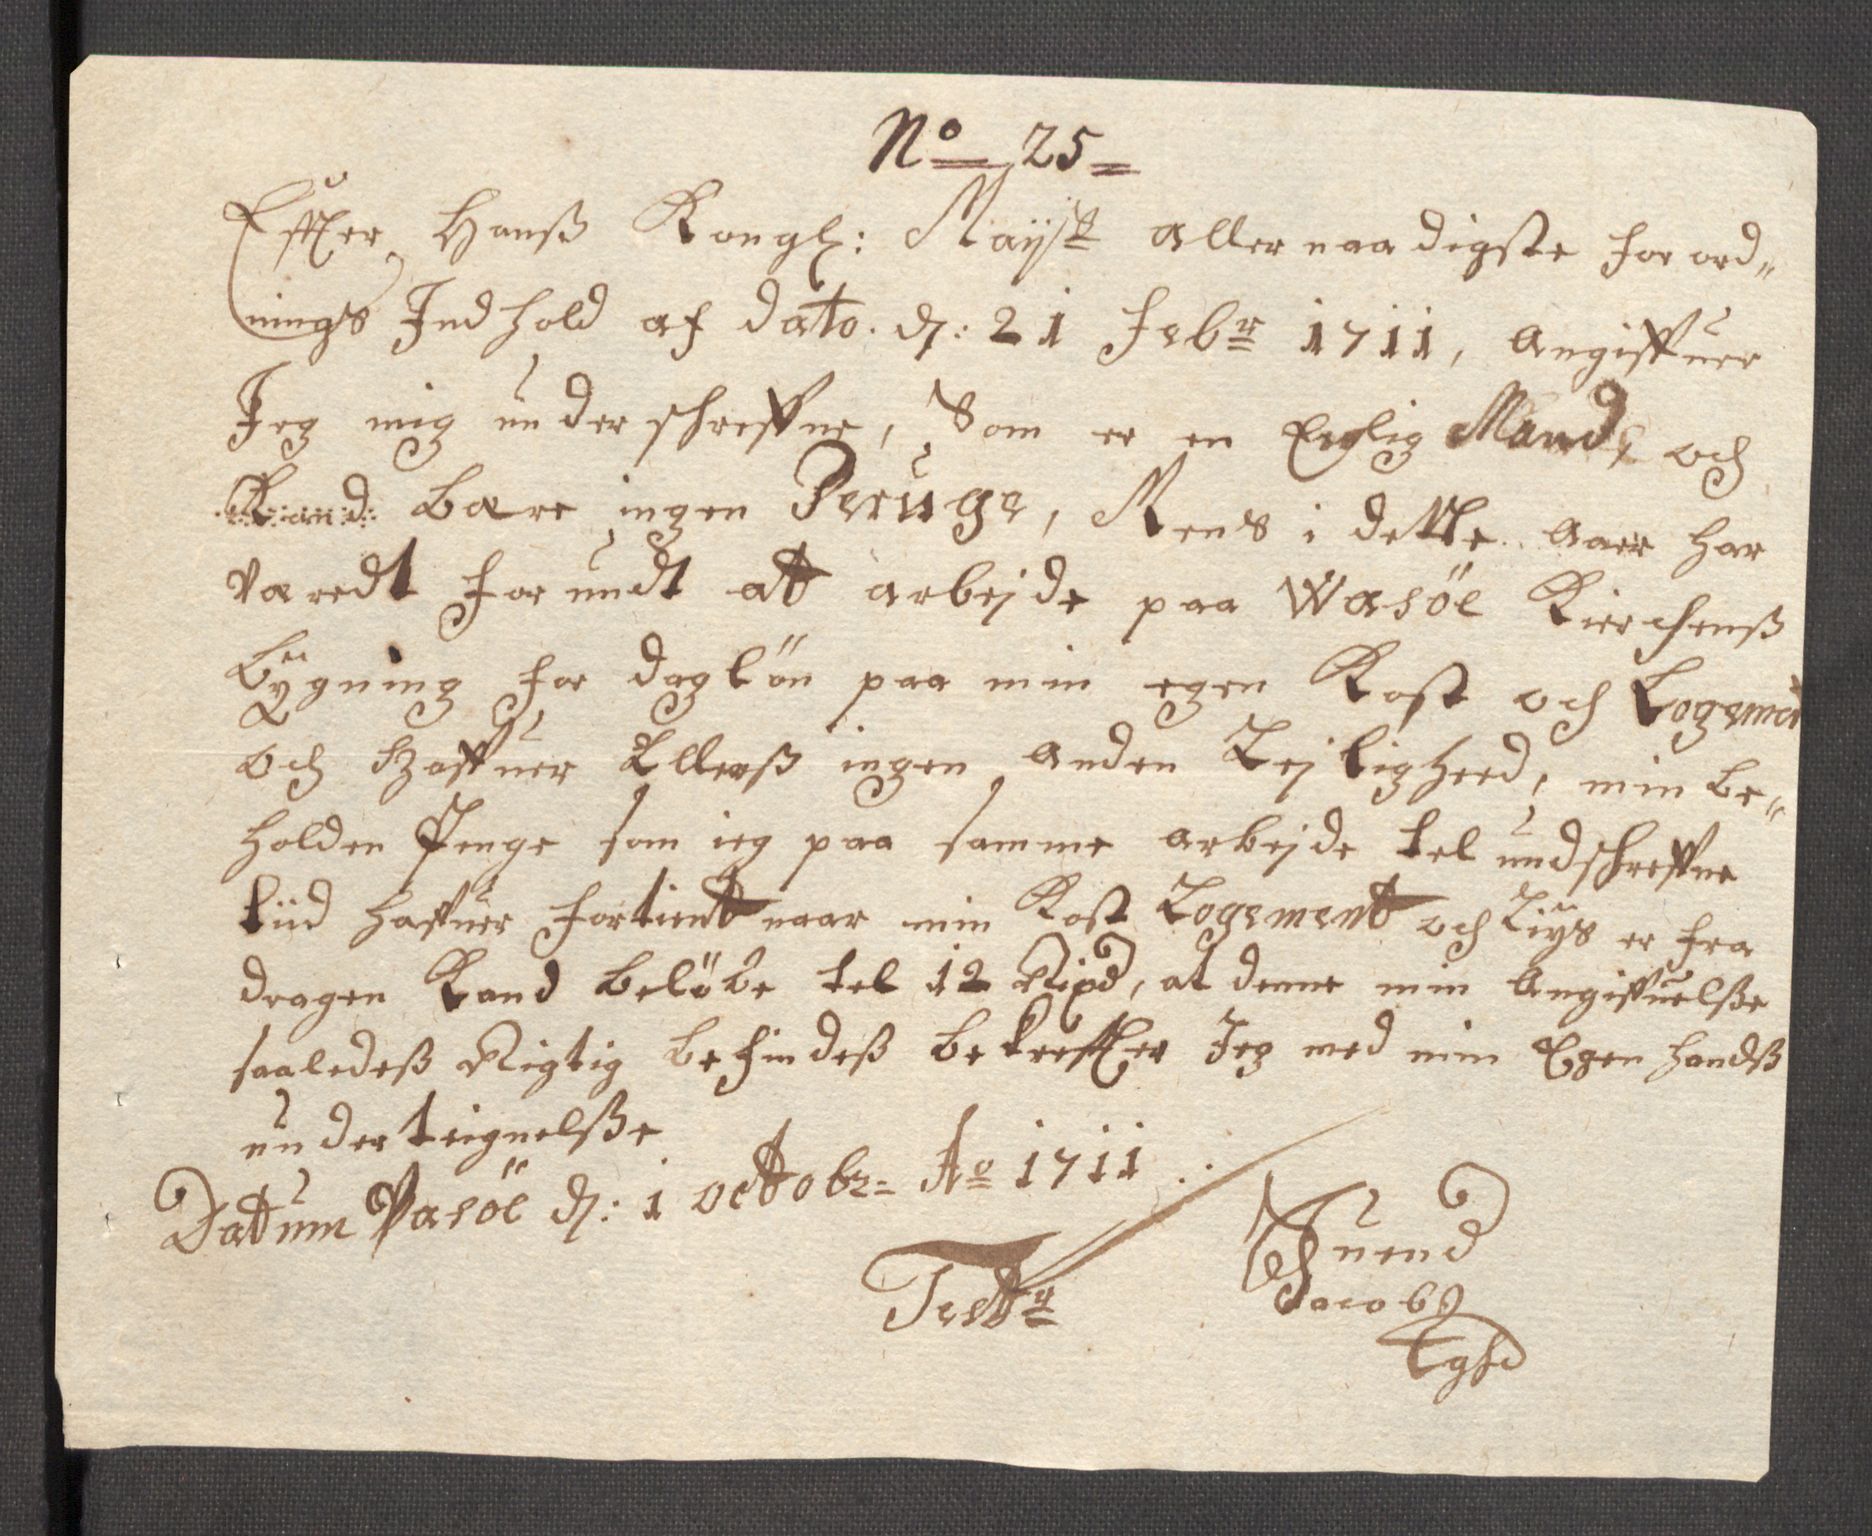 No 25
Effter Hanß Kongl: Mayst aller naadigste forord„
nings Indhold af dato. d: 21 Febr 1711, angiffuer
Jeg mig underschreffne, Som er en Erglig Mand, och
Kand bære ingen Peruge, Mens i dette aar har
væredt forundt att arbejde paa Wasöe Kierchenß
bygning for dagløn paa min egen Kost och Logement
och Haffuer Ellerß ingen anden Lejlighed, min be„
holden Penge som ieg paa samme arbejde tel undschreffne
tiid haffuer fortient naar min Kost Logement och Liys er fra
dragen Kand beløbe tel 12 Rixd, at denne min Angiffuelße
saaledeß Rigtig befindeß bekreffter Jeg med min Egen handß
underteignelße
Dattum Vasöe d: 1 octtobr Ao 1711
Suend
Jacobs
Testr